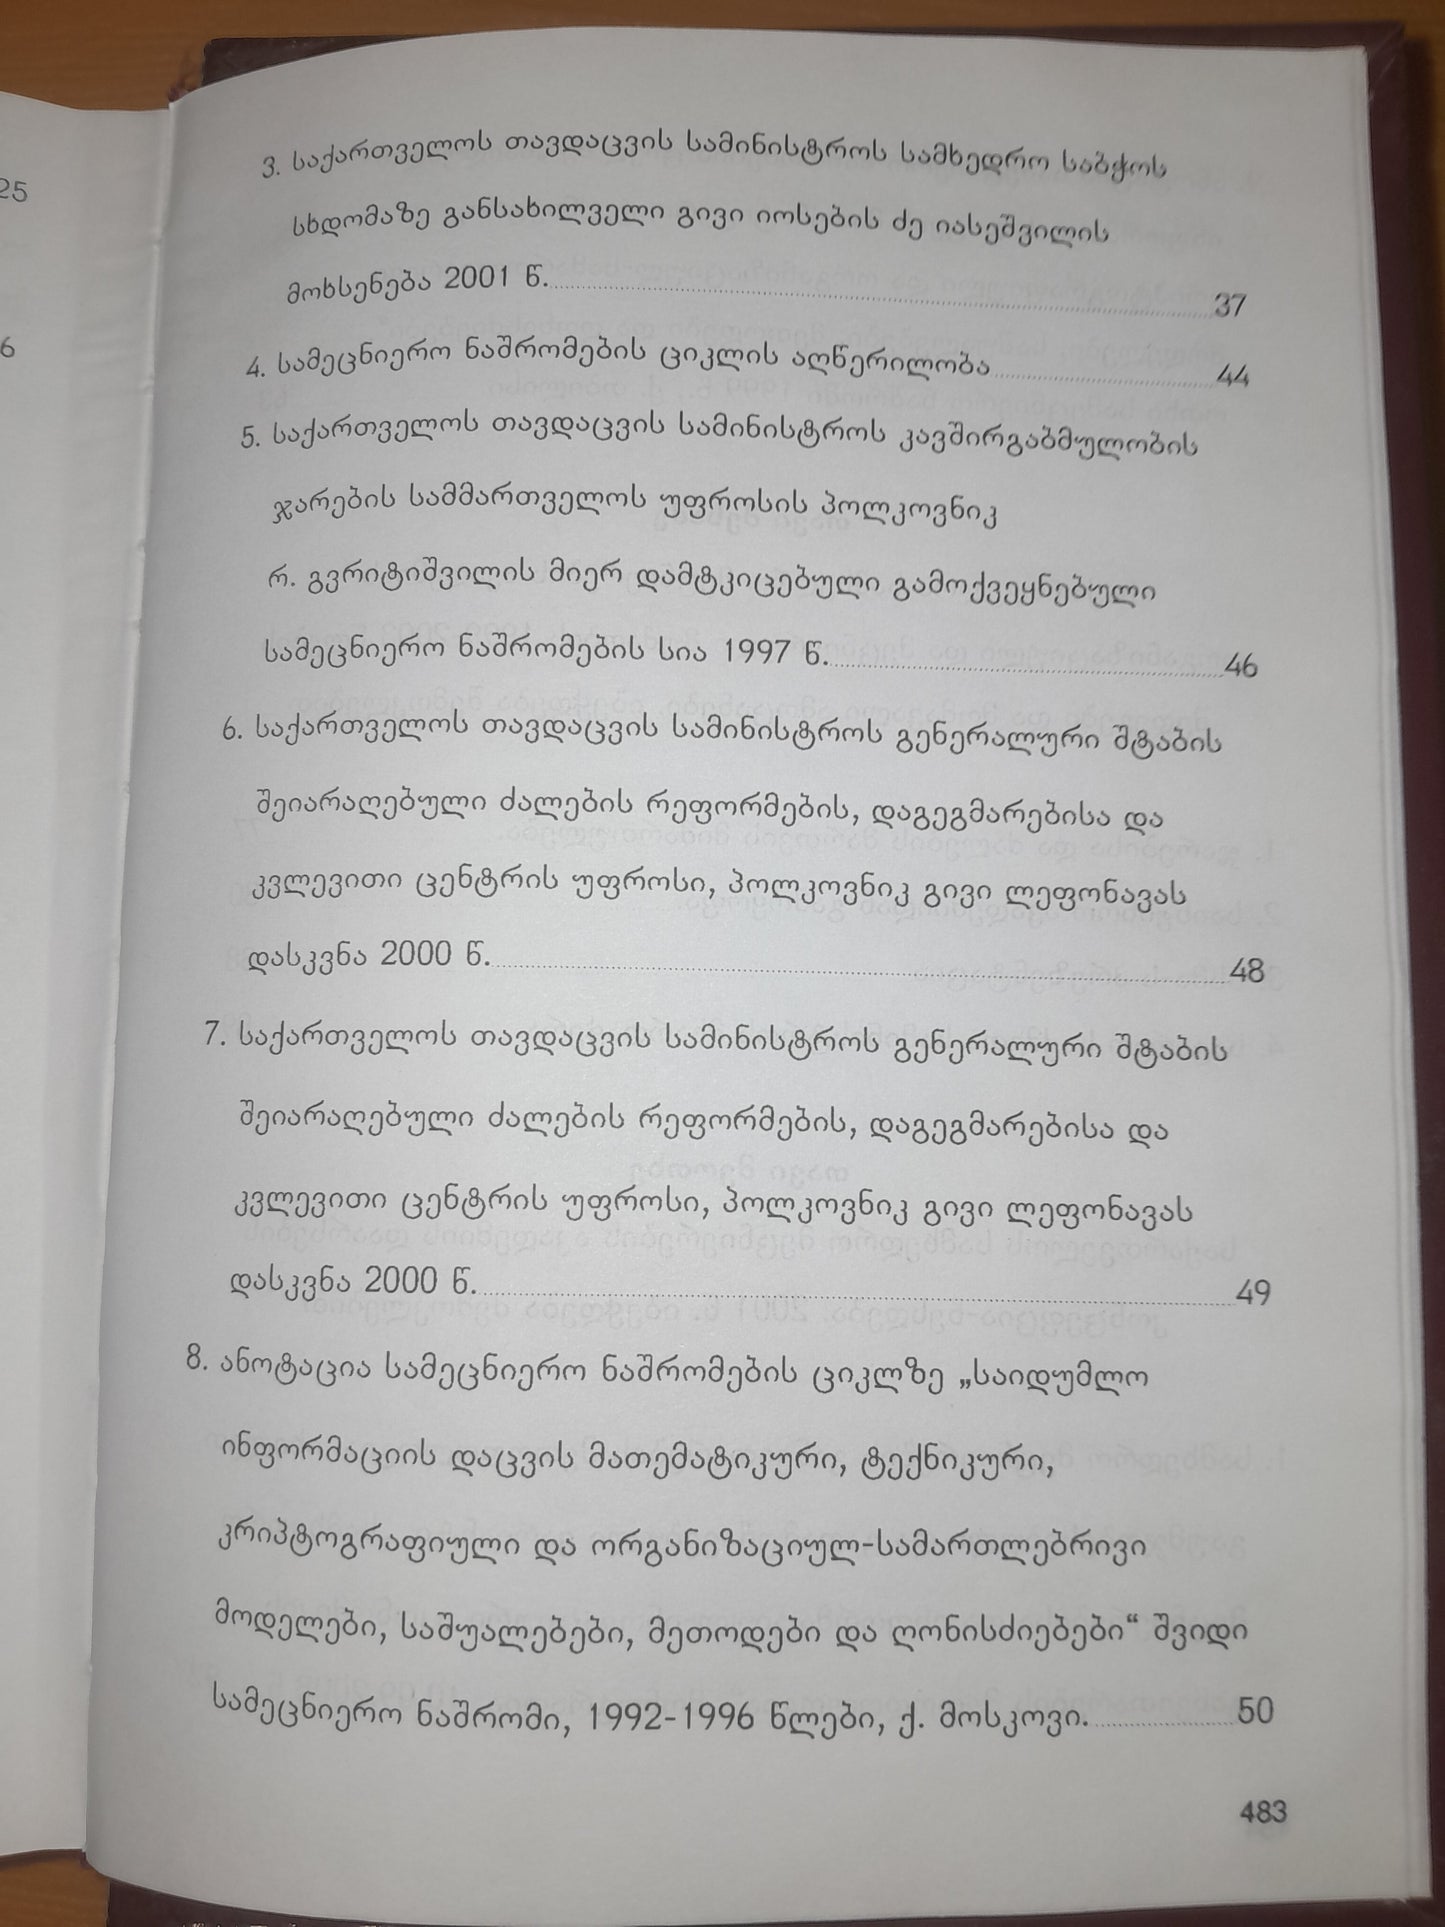 25
6
3. საქართველოს თავდაცვის სამინისტროს სამხედრო საბჭოს
სხდომაზე განსახილველი გივი იოსების ძე იასეშვილის
მოხსენება 2001 წ. 37
4. სამეცნიერო ნაშრომების ციკლის აღწერილობა 44
5. საქართველოს თავდაცვის სამინისტროს კავშირგაბმულობის
ჯარების სამმართველოს უფროსის პოლკოვნიკ
რ. გვრიტიშვილის მიერ დამტკიცებული გამოქვეყნებული
სამეცნიერო ნაშრომების სია 1997 წ. 46
6. საქართველოს თავდაცვის სამინისტროს გენერალური შტაბის
შეიარაღებული ძალების რეფორმების, დაგეგმარებისა და
კვლევითი ცენტრის უფროსი, პოლკოვნიკ გივი ლეფონავას
დასკვნა 2000 წ. 48
7. საქართველოს თავდაცვის სამინისტროს გენერალური შტაბის
შეიარაღებული ძალების რეფორმების, დაგეგმარებისა და
კვლევითი ცენტრის უფროსი, პოლკოვნიკ გივი ლეფონავას
დასკვნა 2000 წ. 49
8. ანოტაცია სამეცნიერო ნაშრომების ციკლზე „საიდუმლო
ინფორმაციის დაცვის მათემატიკური, ტექნიკური,
კრიპტოგრაფიული და ორგანიზაციულ-სამართლებრივი
მოდელები, საშუალებები, მეთოდები და ღონისძიებები“ შვიდი
სამეცნიერო ნაშრომი, 1992-1996 წლები, ქ. მოსკოვი. 50
483